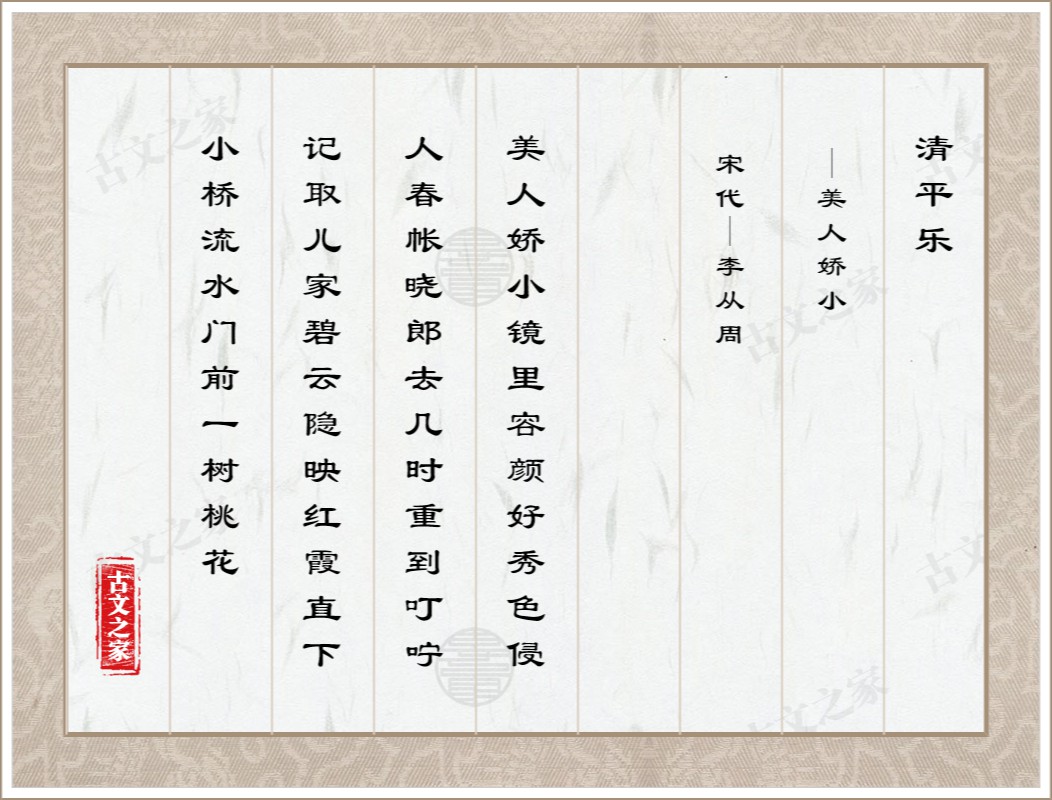 清平乐
—美人娇小
宋代—李从周
美人娇小镜里容颜好秀色侵
人春帐晓郎去几时重到叮咛
记取儿家碧云隐映红霞直下
小桥流水门前一树桃花
古文之家
古文之家
古文之家
古文之家
古文之家
古文之家